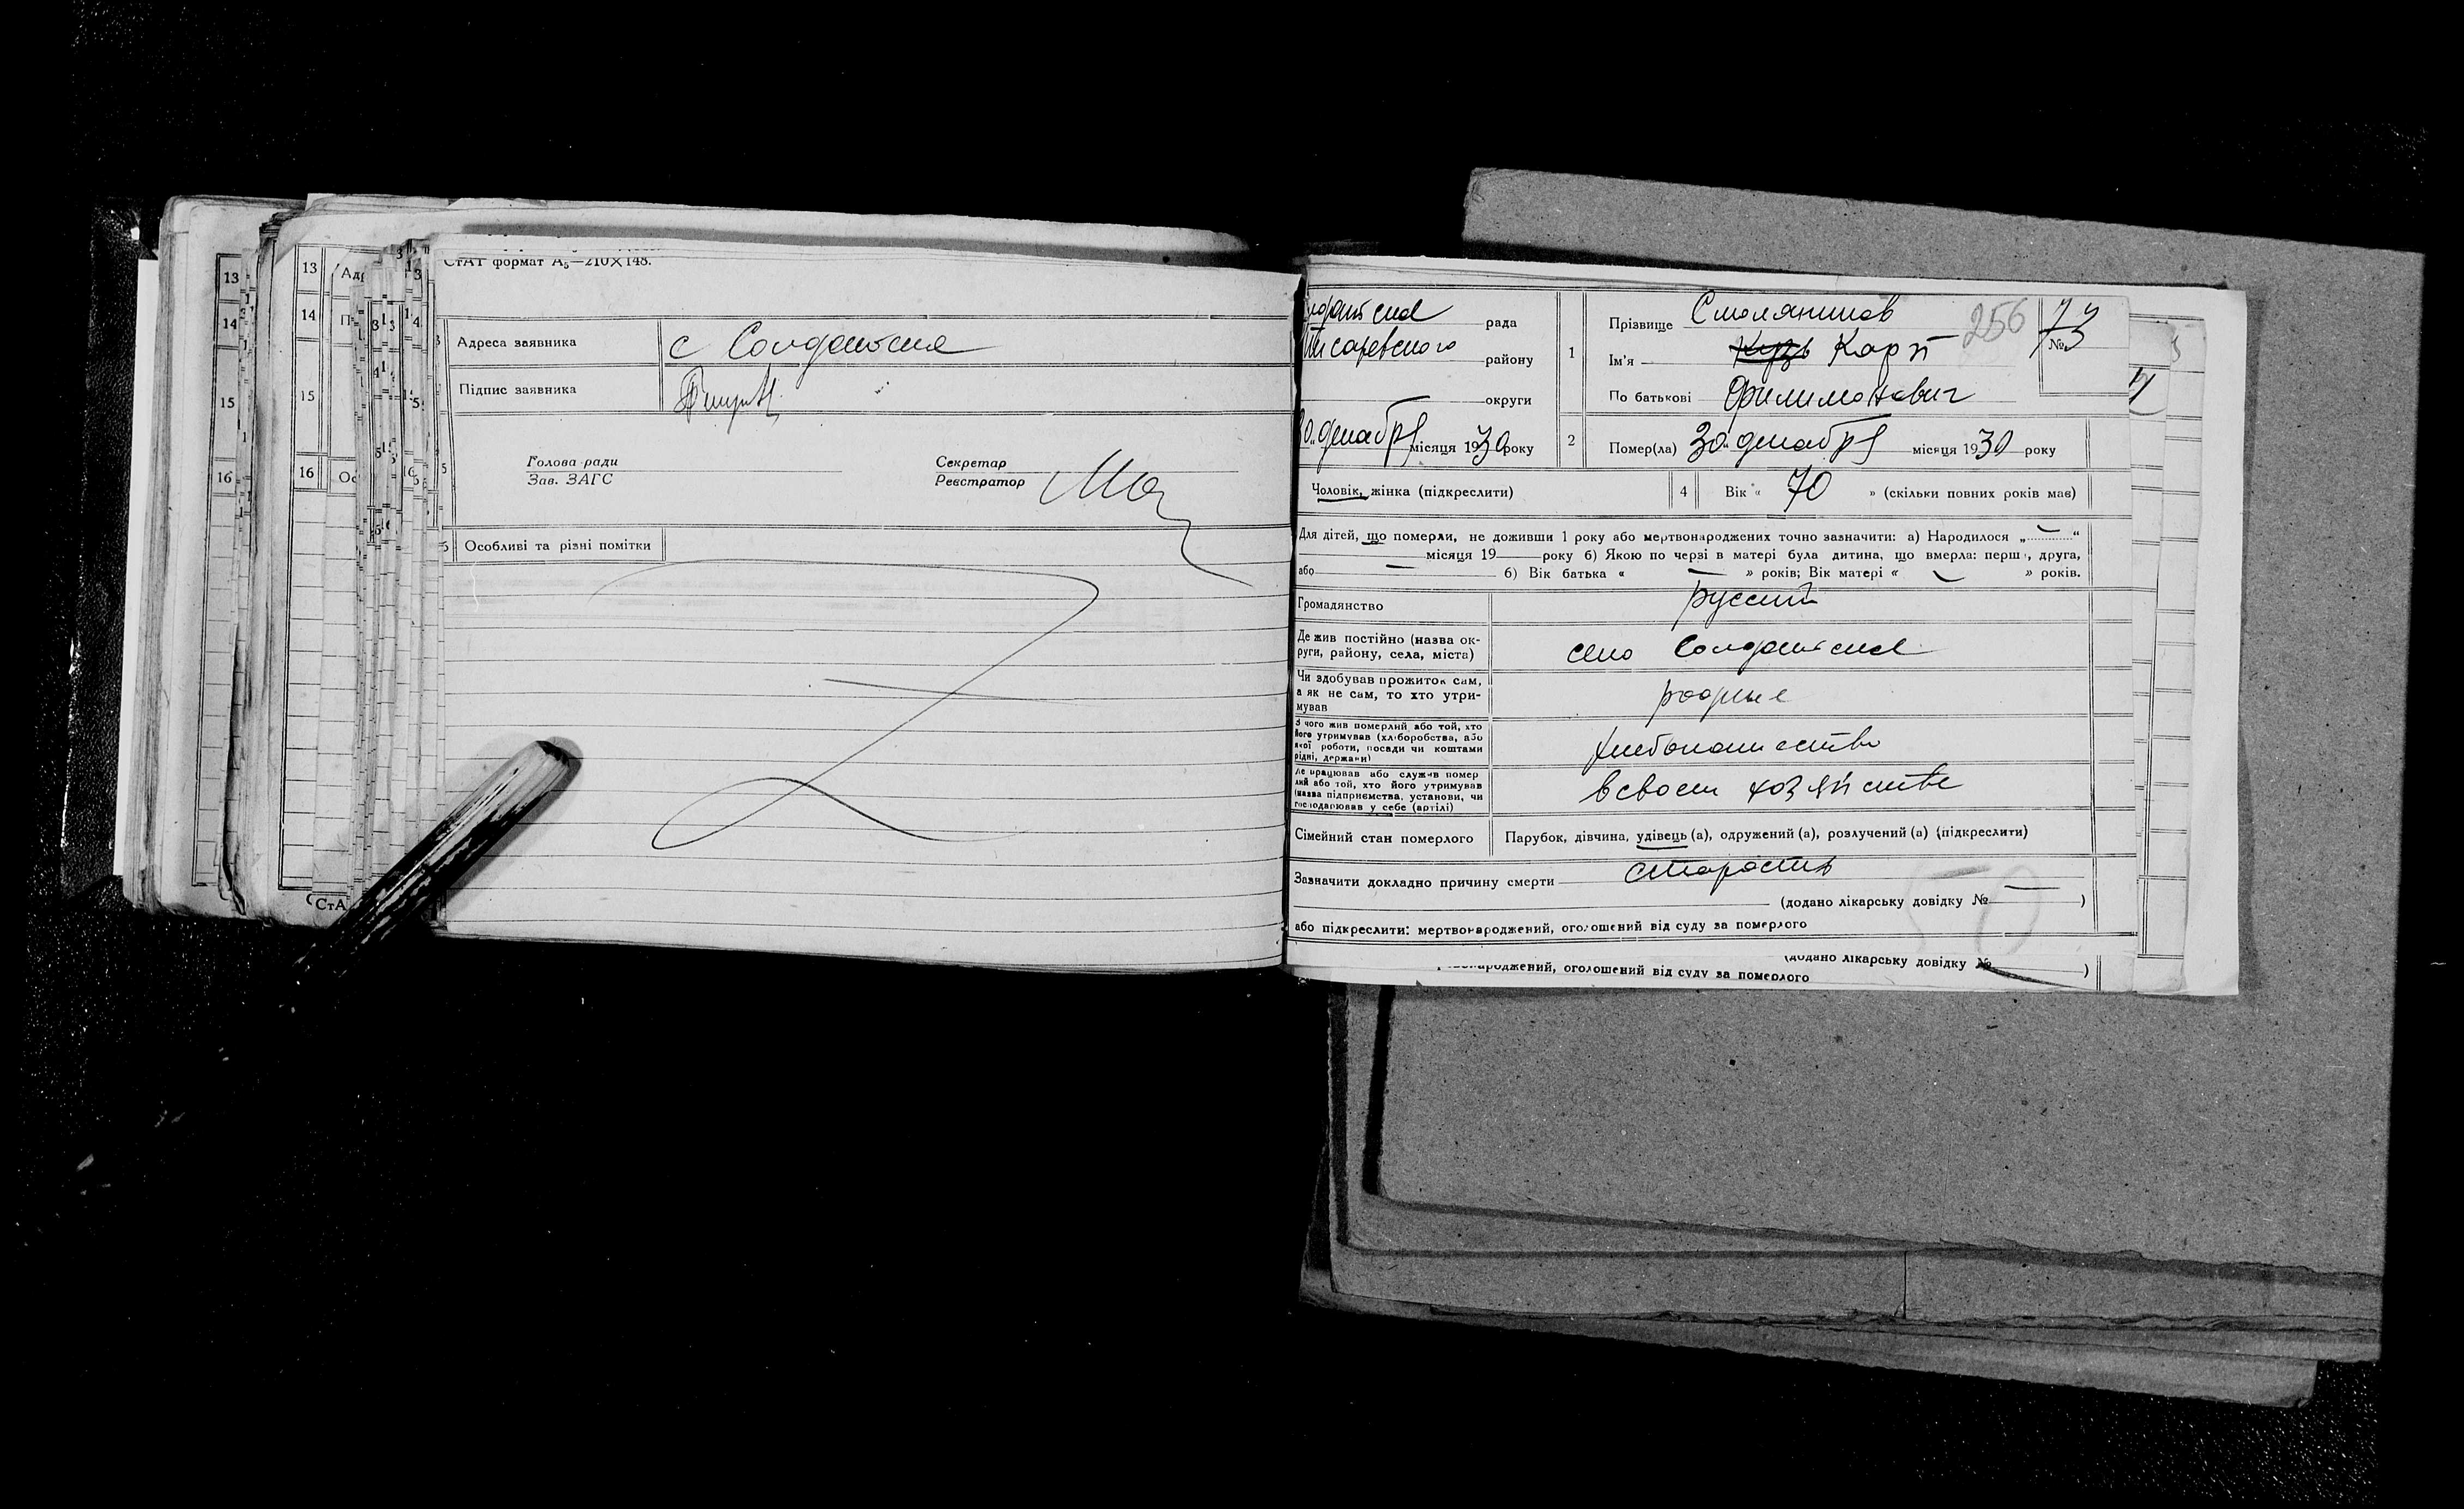 СтАТ формат А₅—210×148.
Адреса заявника
с Солдатское
Підпис заявника
Голова ради
Зав. ЗАГС
Секретар
Реєстратор
Особливі та різні помітки
13
14
15
16
13
14
15
16
рада
Писаревского району
округи
30 декабря місяця 1930 року
1
Прізвище Смолянинов
Ім'я Карп
По батькові Филимонович
256
№ 73
2
Помер(ла) 30 „ декабря місяця 1930 року
Чоловік, жінка (підкреслити)
4
Вік « 70 » (скільки повних років мав)
Для дітей, що померли, не доживши 1 року або мертвонароджених точно зазначити: а) Народилося „ “
місяця 19 року б) Якою по черзі в матері була дитина, що вмерла: перша, друга,
або б) Вік батька « » років; Вік матері « » років.
Громадянство
русский
Де жив постійно (назва ок-
руги, району, села, міста)
село Солдатское
Чи здобував прожиток сам,
а як не сам, то хто утри-
мував
родные
З чого жив померлий або той, хто
його утримував (хліборобства, або
якої роботи, посади чи коштами
рідні, держави)
хлебопашество
Де працював або служив помер
лий або той, хто його утримував
(назва підприємства, установи, чи
господарював у себе (артілі)
в своем хозяйстве
Сімейний стан померлого
Парубок, дівчина, удівець (а), одружений (а), розлучений (а) (підкреслити)
Зазначити докладно причину смерти старость
(додано лікарську довідку № )
або підкреслити: мертвонароджений, оголошений від суду за померлого
(додано лікарську довідку № )
оголошений від суду за померлого